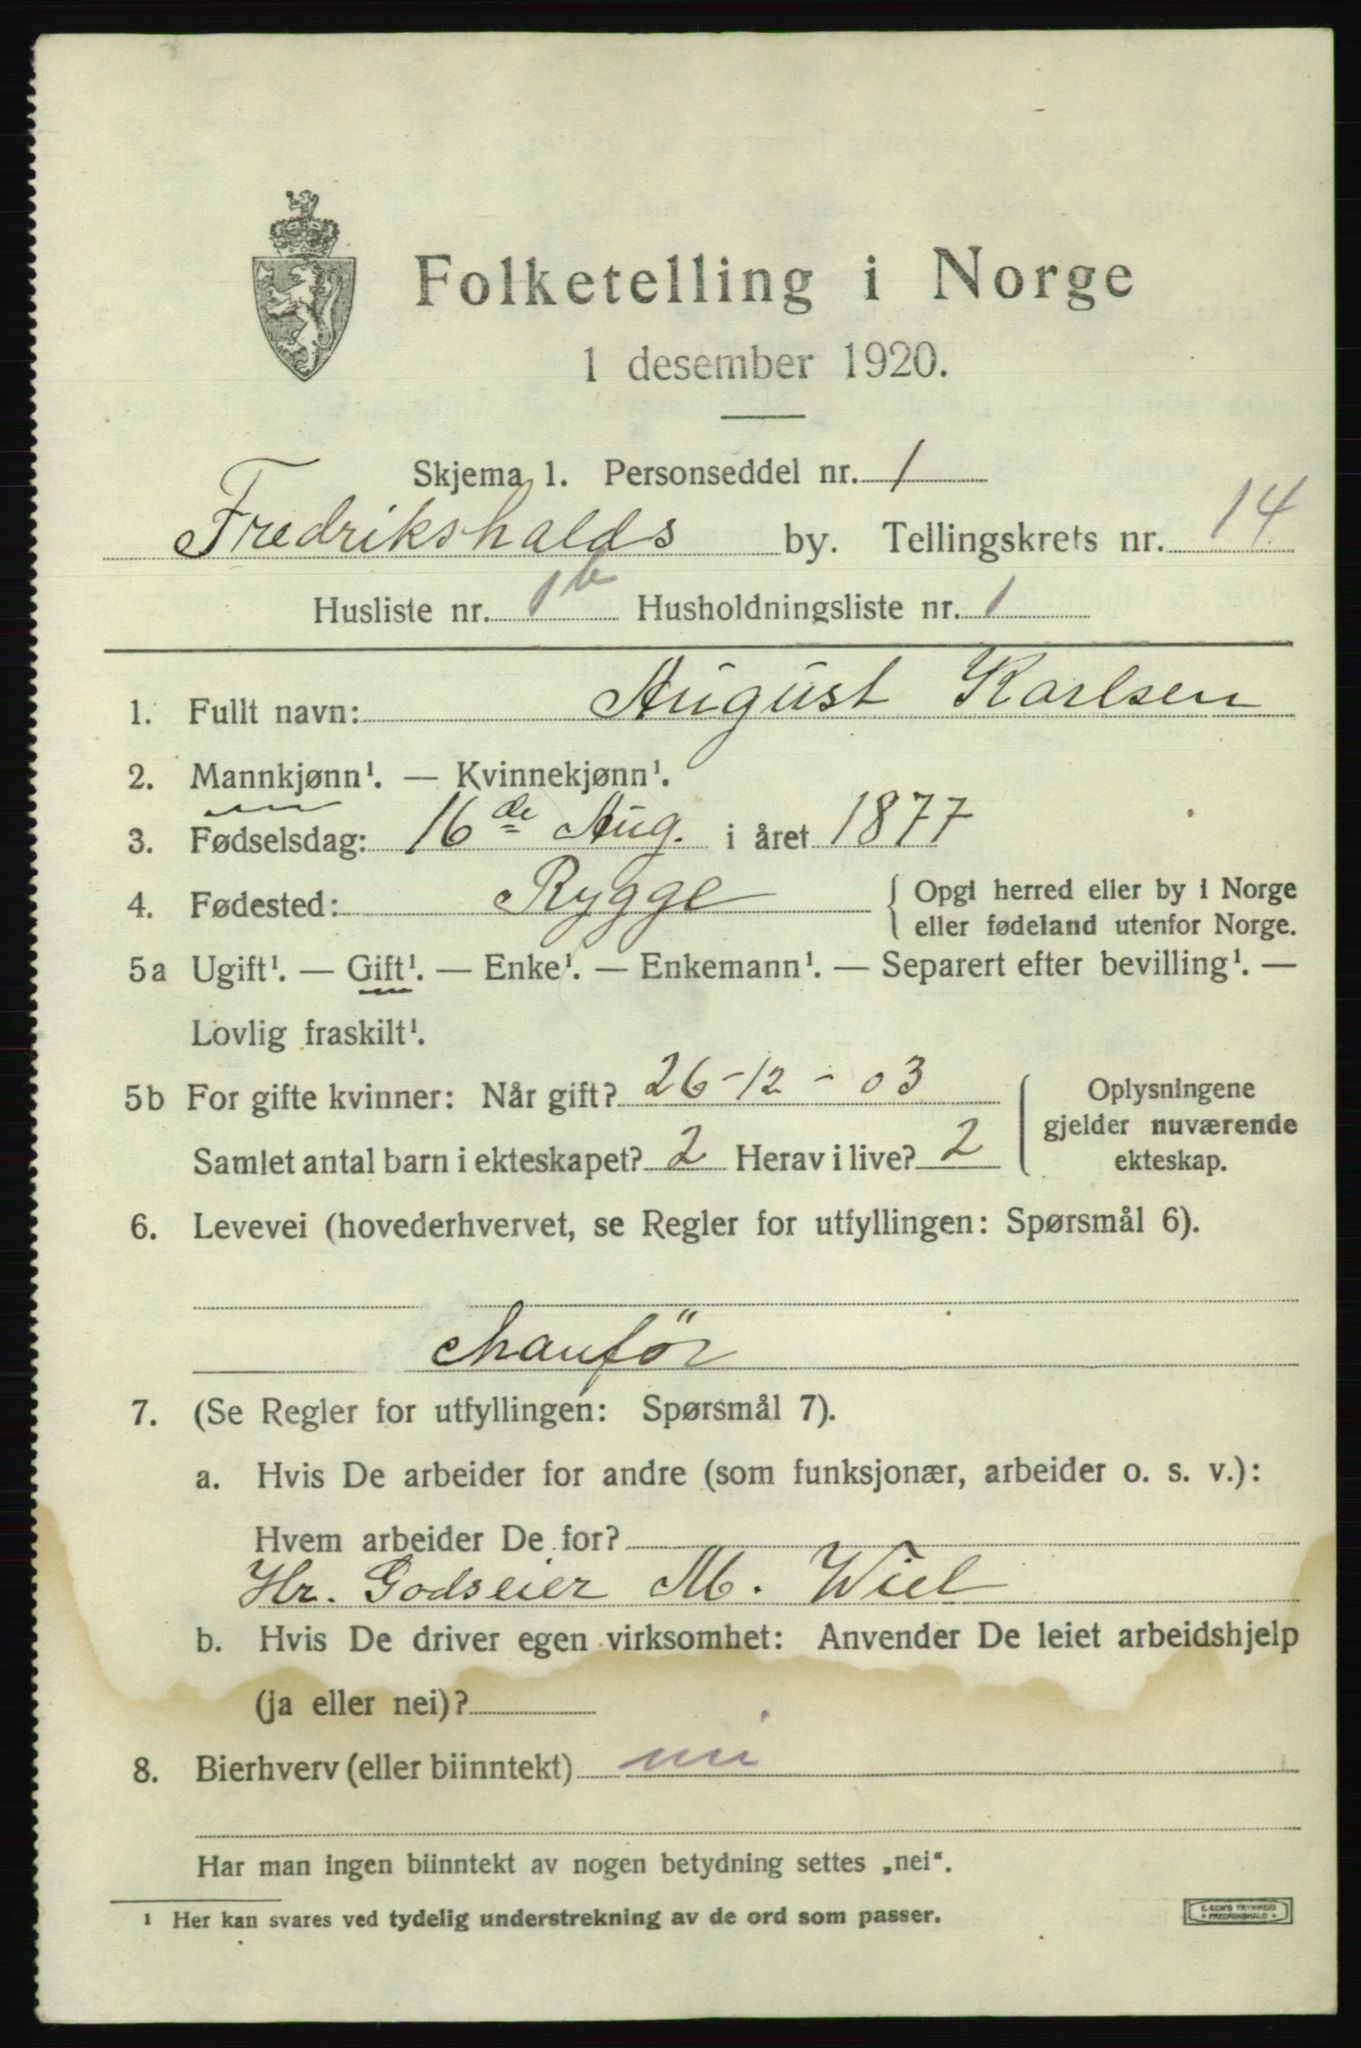 Folketelling i Norge
1 desember 1920.
Skjema 1. Personseddel nr. 1
Fredrikshalds by. Tellingskrets nr. 14
Husliste nr. 1b Husholdningsliste nr. 1
1. Fullt navn: August Karlsen
2. Mannkjønn¹. — Kvinnekjønn¹.
3. Fødselsdag: 16de Aug. i året 1877
4. Fødested: Rygge { Opgi herred eller by i Norge
eller fødeland utenfor Norge.
5a Ugift¹. — Gift¹. — Enke¹. — Enkemann¹. — Separert efter bevilling¹. —
Lovlig fraskilt¹.
5b For gifte kvinner: Når gift? 26-12-03
Samlet antal barn i ekteskapet? 2 Herav i live? 2
Oplysningene
gjelder nuværende
ekteskap.
6. Levevei (hovederhvervet, se Regler for utfyllingen: Spørsmål 6).
chauför
7. (Se Regler for utfyllingen: Spørsmål 7).
a. Hvis De arbeider for andre (som funksjonær, arbeider o. s. v.):
Hvem arbeider De for?
Hr. Godseier M. Wiel
b. Hvis De driver egen virksomhet: Anvender De leiet arbeidshjelp
(ja eller nei)?
8. Bierhverv (eller biinntekt) nei
Har man ingen biinntekt av nogen betydning settes „nei“.
¹ Her kan svares ved tydelig understrekning av de ord som passer.
E. SEM'S TRYKKERI
* FREDRIKSHALD *